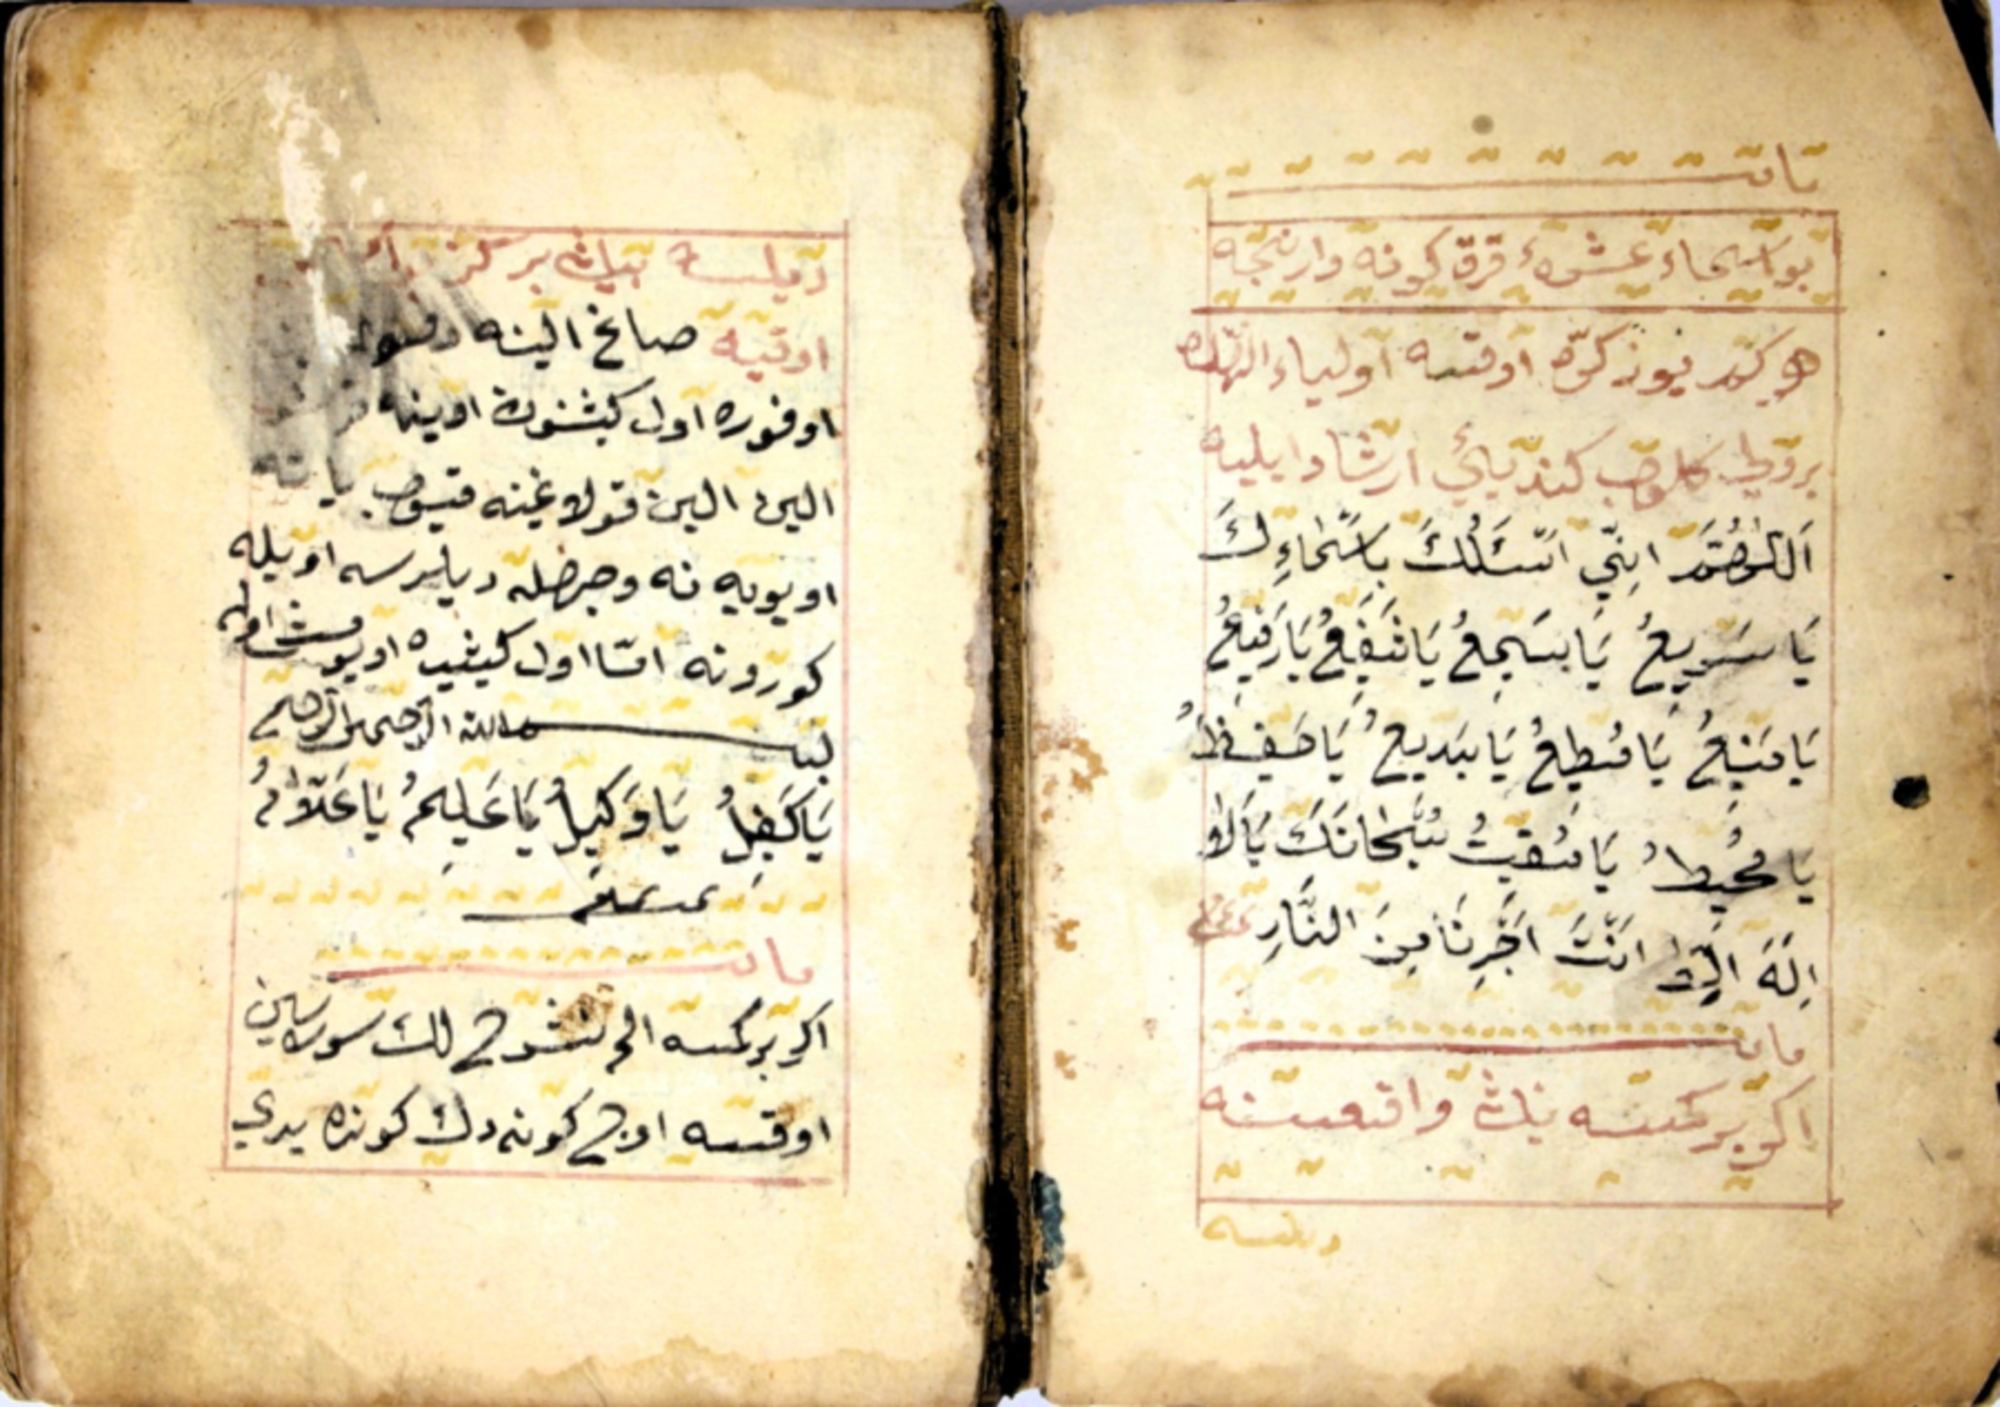 باب
بو اسماء عشرهٔ قرق كونه وارنجيه
هر كون يوز كره اوقسه اولياء اللهدن
برى كلوب كنديائ ارشاد ايليه
اَللّٰهُمَّ اِنِّي اَسْئَلُكَ بِاَسْمَاءِكَ
يَا سَرِيعُ يَا سَمِيعُ يَا شَفِيعُ يَا رَفِيعُ
يَا مَنِيعُ يَا مُطِيعُ يَا بَدِيعُ يَا حَفِيظُ
يَا مُحِيطُ يَا مُقِيتُ سُبْحَانَكَ يَا لَا
اِلَهَ اِلَّا اَنْتَ اَجِرْنَا مِنَ النَّارِ
باب
اكر بر كمسه نك واقعسنه
ديلسه
ديلسه
اوقيه صاغ الينه
اوفوره اول كيشنون اوينه
الين الين قولاغنه قيوب
اويويه نه وجهله ديلرسه اويله
كورونه اما اول كيشيه اويومش اوله
بسم الله الرحمن الرحيم
يَا كَفِيلُ يَا وَكِيلُ يَا عَلِيمُ يَا عَلَّامُ
باب
اكر بر كمسه الم نشرح لك سوره سين
اوقسه اوج كونه دك كونده يدى